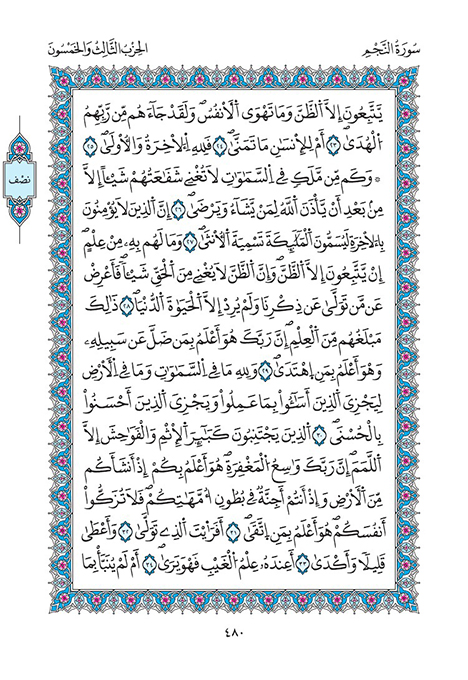 سُورَةُ النَّجْمِ
الحِزْبُ الثَّالِثُ وَالخَمْسُونَ
يَّتَّبِعُونَ إِلَّا اَلظَّنَّ وَمَا تَهْوَى اَلْأَنفُسُ وَلَقَدْ جَآءَهُم مِّن رَّبِّهِمُ
اُلْهُدَىٰ ٢٣ أَمْ لِلْإِنسَٰنِ مَا تَمَنَّىٰ ٢٤ فَلِلهِ اِلْأَخِرَةُ وَالْأُولَىٰ ٢٥
* وَكَم مِّن مَّلَكٍ فِي اِلسَّمَٰوَٰتِ لَا تُغْنِي شَفَٰعَتُهُمْ شَيْـًٔا اِلَّا
مِنۢ بَعْدِ أَنْ يَّأْذَنَ اَللَّهُ لِمَنْ يَّشَآءُ وَيَرْضَىٰ ٢٦ إِنَّ اَلذِينَ لَا يُؤْمِنُونَ
بِالْأَخِرَةِ لَيُسَمُّونَ اَلْمَلَٰٓئِكَةَ تَسْمِيَةَ اَلْأُنثَىٰ ٢٧ وَمَا لَهُم بِهِۦ مِنْ عِلْمٍ
إِنْ يَّتَّبِعُونَ إِلَّا اَلظَّنَّ وَإِنَّ اَلظَّنَّ لَا يُغْنِي مِنَ اَلْحَقِّ شَيْـًٔا فَأَعْرِضْ
عَن مَّن تَوَلَّىٰ عَن ذِكْرِنَا وَلَمْ يُرِدِ اِلَّا اَلْحَيَوٰةَ اَلدُّنْيَا ٢٨ ذَٰلِكَ
مَبْلَغُهُم مِّنَ اَلْعِلْمِ إِنَّ رَبَّكَ هُوَ أَعْلَمُ بِمَن ضَلَّ عَن سَبِيلِهِۦ
وَهُوَ أَعْلَمُ بِمَنِ اِهْتَدَىٰ ٢٩ وَلِلهِ مَا فِي اِلسَّمَٰوَٰتِ وَمَا فِي اِلْأَرْضِ
لِيَجْزِيَ اَلذِينَ أَسَٰٓـُٔواْ بِمَا عَمِلُواْ وَيَجْزِيَ اَلذِينَ أَحْسَنُواْ
بِالْحُسْنَى ٣٠ اَلذِينَ يَجْتَنِبُونَ كَبَٰٓئِرَ اَلْإِثْمِ وَالْفَوَٰحِشَ إِلَّا
اَللَّمَمَ إِنَّ رَبَّكَ وَٰسِعُ اُلْمَغْفِرَةِ هُوَ أَعْلَمُ بِكُمْ إِذْ أَنشَأَكُم
مِّنَ اَلْأَرْضِ وَإِذْ أَنتُمْ أَجِنَّةٌ فِي بُطُونِ أُمَّهَٰتِكُمْ فَلَا تُزَكُّواْ
أَنفُسَكُمْ هُوَ أَعْلَمُ بِمَنِ اِتَّقَىٰ ٣١ أَفَرَٰيْتَ اَلذِي تَوَلَّىٰ ٣٢ وَأَعْطَىٰ
قَلِيلًا وَأَكْدَىٰ ٣٣ أَعِندَهُۥ عِلْمُ اُلْغَيْبِ فَهُوَ يَرَىٰ ٣٤ أَمْ لَمْ يُنَبَّأْ بِمَا
نصف
٤٨٠